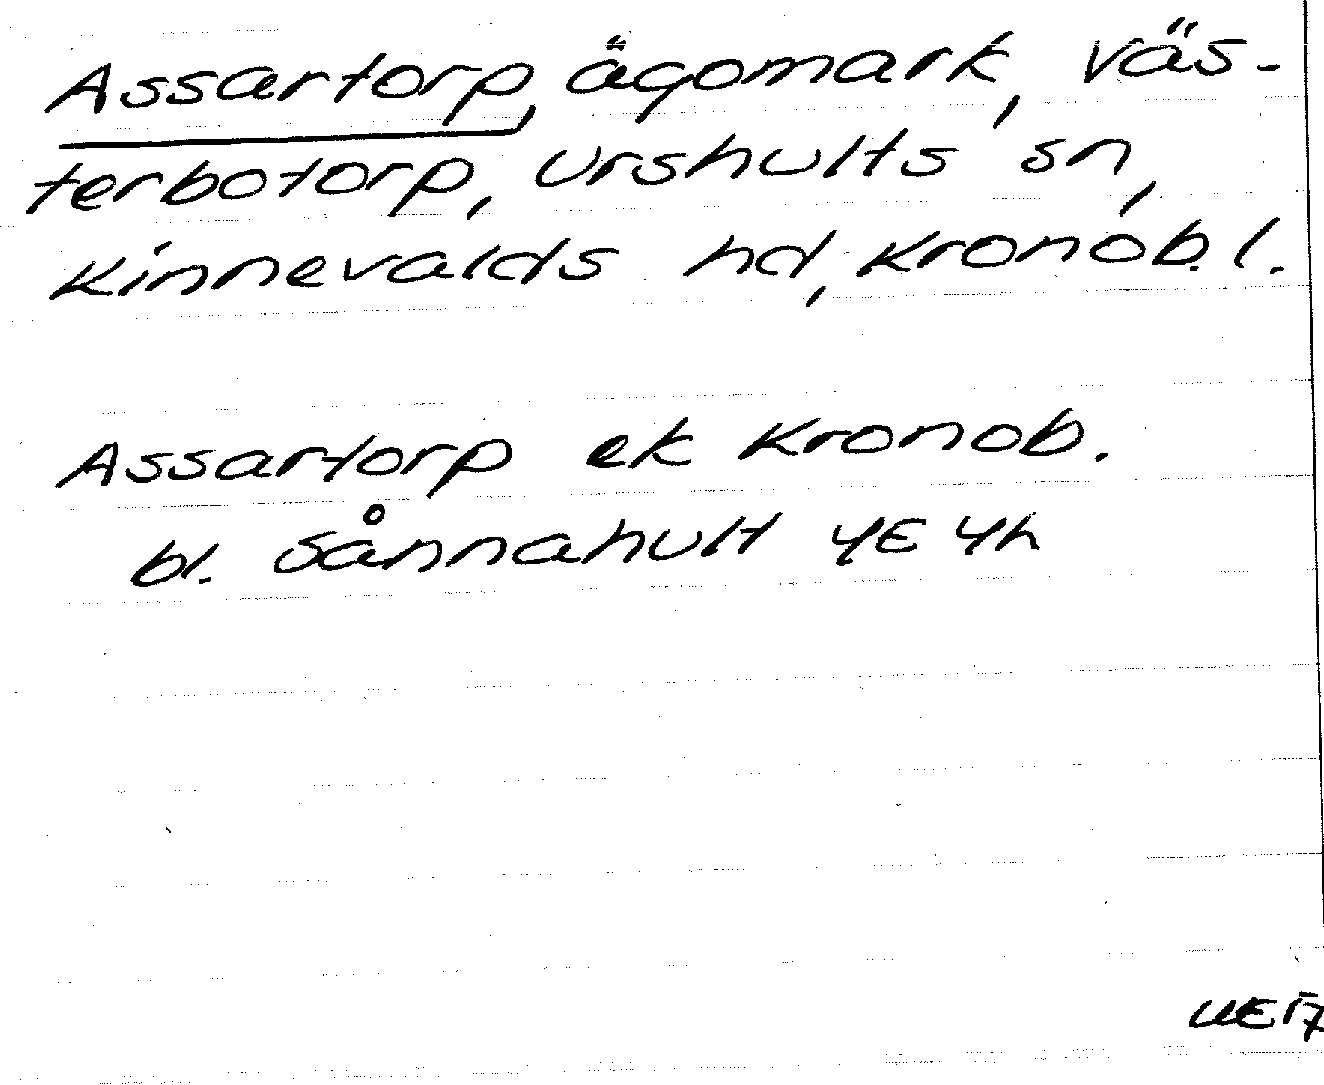 Assartorp, ägomark, Väs-
terbotorp, Urshults sn,
Kinnevalds hd, Kronob. l.
Assartorp ek Kronob.
bl. Sånnahult 4E 4h